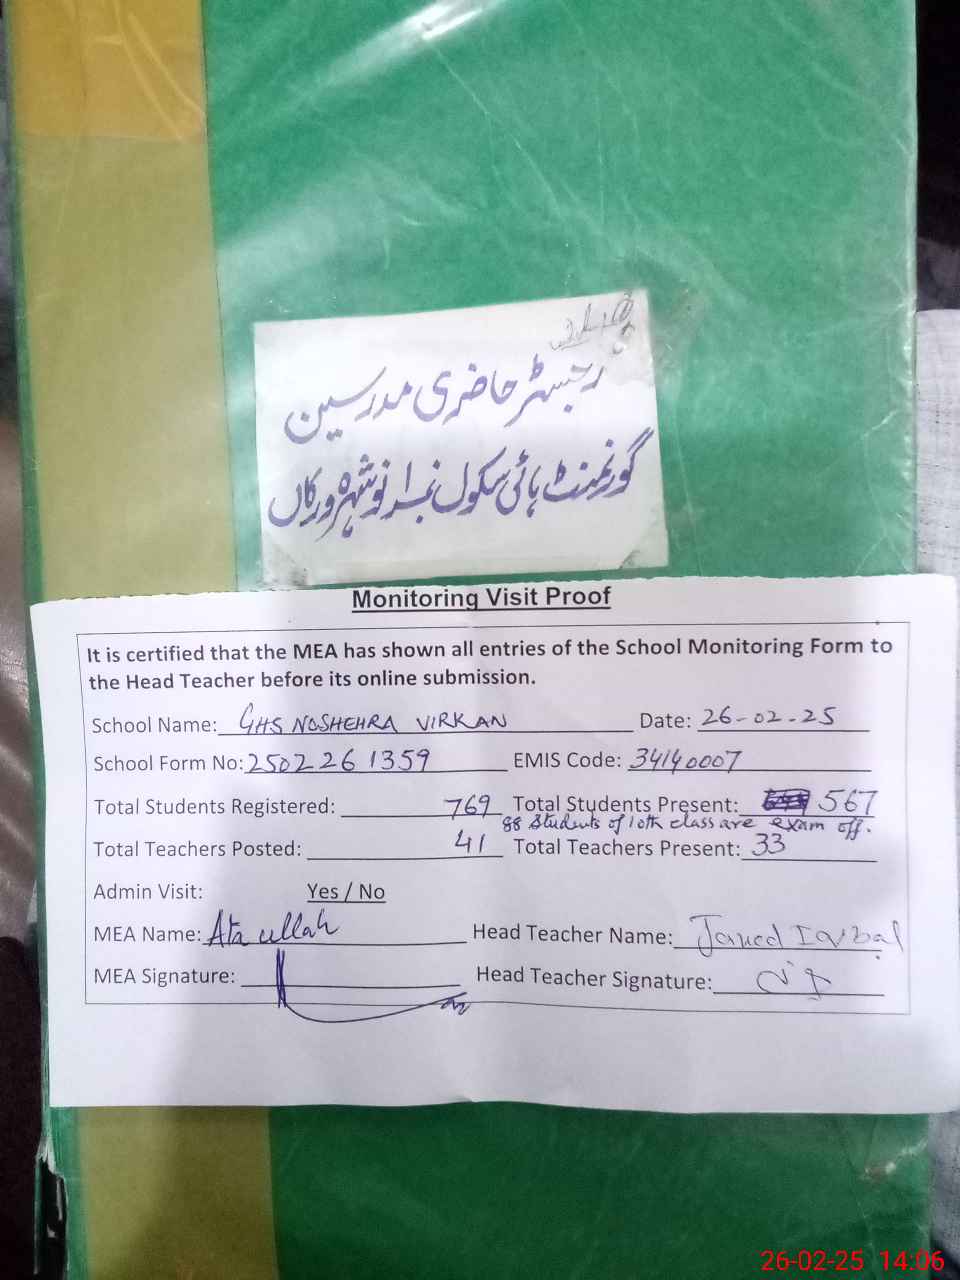 رجسٹر حاضری مدرسین
گورنمنٹ ہائی سکول نمبر 1 نوشہرہ ورکاں
Monitoring Visit Proof
It is certified that the MEA has shown all entries of the School Monitoring Form to
the Head Teacher before its online submission.
School Name: GHS NOSHEHRA VIRKAN Date: 26-02-25
School Form No: 2502261359 EMIS Code: 34140007
Total Students Registered: 769 Total Students Present: 567
88 Students of 10th class are exam off.
Total Teachers Posted: 41 Total Teachers Present: 33
Admin Visit: Yes / No
MEA Name: Ata ullah Head Teacher Name: Javed Iqbal
MEA Signature: Head Teacher Signature:
26-02-25 14:06